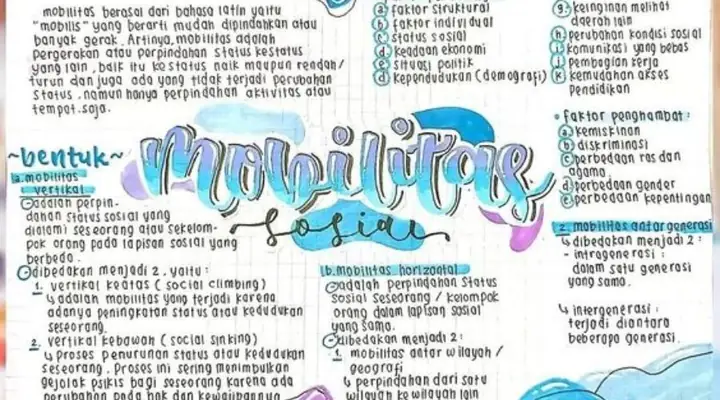 mobilitas berasal dari bahasa latin yaitu
"mobilis" yang berarti mudah dipindahkan atau
banyak gerak. Artinya, mobilitas adalah
pergerakan atau perpindahan status kestatus
yang lain, baik itu ke status naik maupun rendah/
turun dan juga ada yang tidak terjadi perubahan
status, namun hanya perpindahan aktivitas atau
tempat saja.
a. faktor struktural
b. faktor individual
c. status sosial
d. keadaan ekonomi
e. situasi politik
d. kependudukan (demografi)
g. keinginan melihat
daerah lain
h. perubahan kondisi sosial
i. komunikasi yang bebas
j. pembagian kerja
k. kemudahan akses
pendidikan
• faktor penghambat:
a. kemiskinan
b. diskriminasi
c. perbedaan ras dan
agama
d. perbedaan gender
e. perbedaan kepentingan
mobilitas
sosial
~bentuk~
a. mobilitas
vertikal
adalah perpin-
dahan status sosial yang
dialami seseorang atau sekelom-
pok orang pada lapisan sosial yang
berbeda.
dibedakan menjadi 2, yaitu:
1. vertikal keatas (social climbing)
↳ adalah mobilitas yang terjadi karena
adanya peningkatan status atau kedudukan
seseorang.
2. vertikal kebawah (social sinking)
↳ proses penurunan status atau kedudukan
seseorang. Proses ini sering menimbulkan
gejolak psikis bagi seseorang karena ada
perubahan pada hak dan kewajibannya
b. mobilitas horizontal
adalah perpindahan status
sosial seseorang / kelompok
orang dalam lapisan sosial
yang sama.
dibedakan menjadi 2:
1. mobilitas antar wilayah /
geografi
↳ perpindahan dari satu
wilayah ke wilayah lain
2. mobilitas antar generasi
↳ dibedakan menjadi 2:
- intragenerasi:
dalam satu generasi
yang sama.
↳ intergenerasi:
terjadi diantara
beberapa generasi.